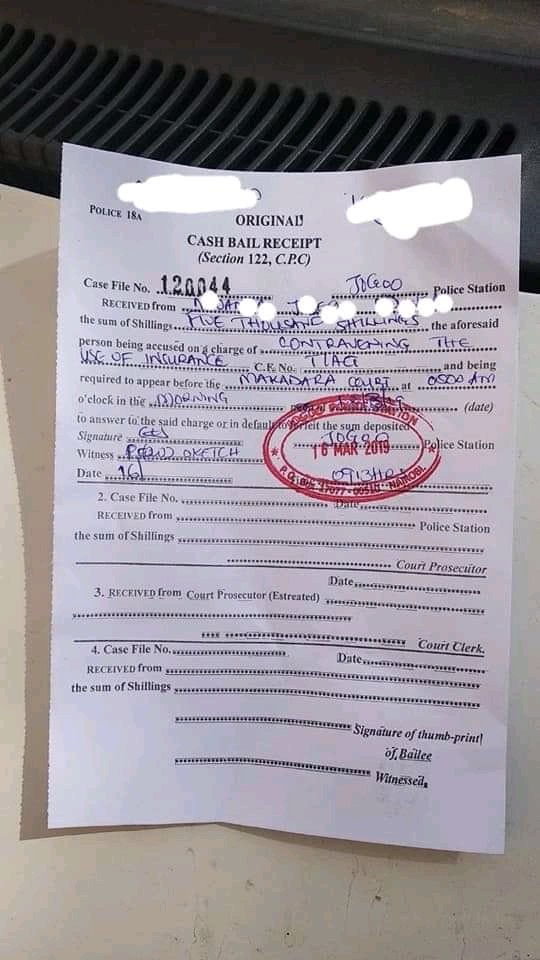 POLICE 18A
ORIGINAL
CASH BAIL RECEIPT
(Section 122, C.P.C)
Case File No. 126044 JOGOO Police Station
RECEIVED from
the sum of Shillings FIVE THOUSAND SHILLINGS the aforesaid
person being accused on a charge of CONTRAVENING THE
USE OF INSURANCE C.F. No. and being
required to appear before the MAKADARA COURT at 0800 AM
o'clock in the MORNING (date)
to answer to the said charge or in default to forfeit the sum deposited
Signature JOGOO Police Station
Witness OKETCH 16 MAR 2019
Date 16/ 0913HRS
P.O. BOX 37077 - 00510 NAIROBI
2. Case File No. Date
RECEIVED from Police Station
the sum of Shillings
Court Prosecutor
Date
3. RECEIVED from Court Prosecutor (Estreated)
Court Clerk.
4. Case File No. Date
RECEIVED from
the sum of Shillings
Signature of thumb-print
of Bailee
Witnessed,